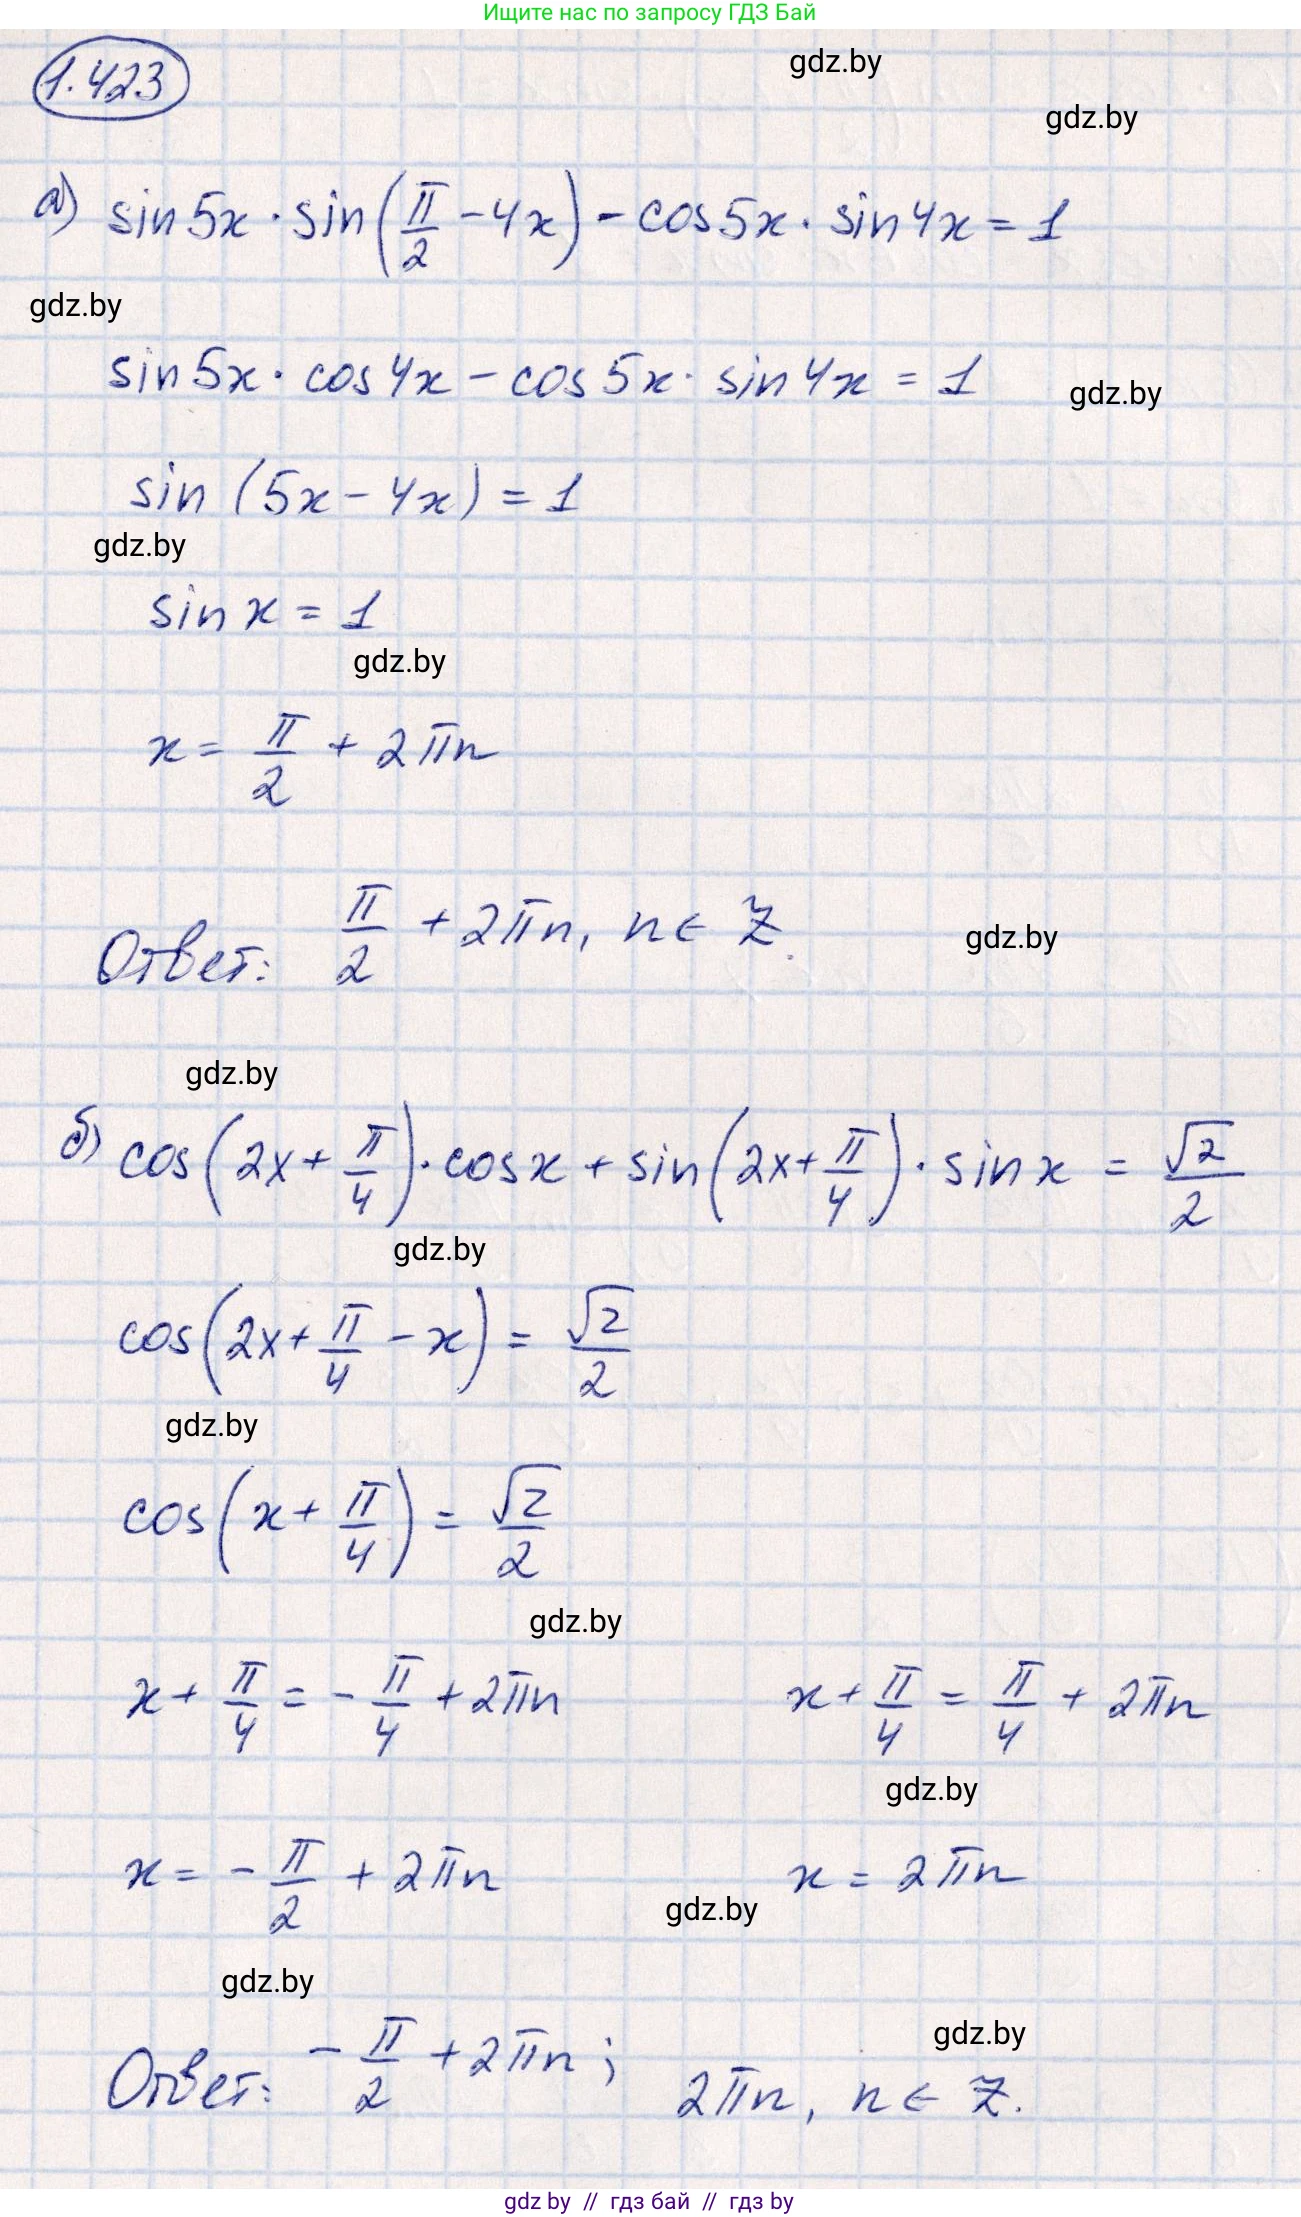 Ищите нас по запросу ГДЗ Бай
1.423
gdz.by
gdz.by
а) sin5x · sin(π/2 - 4x) - cos5x · sin4x = 1
gdz.by
sin5x · cos4x - cos5x · sin4x = 1
gdz.by
sin(5x - 4x) = 1
gdz.by
sin x = 1
gdz.by
x = π/2 + 2πn
Ответ: π/2 + 2πn, n ∈ Z.
gdz.by
gdz.by
б) cos(2x + π/4) · cosx + sin(2x + π/4) · sin x = √2/2
gdz.by
cos(2x + π/4 - x) = √2/2
gdz.by
cos(x + π/4) = √2/2
gdz.by
x + π/4 = - π/4 + 2πn x + π/4 = π/4 + 2πn
gdz.by
x = - π/2 + 2πn x = 2πn
gdz.by
gdz.by
gdz.by
Ответ: - π/2 + 2πn; 2πn, n ∈ Z.
gdz by // гдз бай // гдз by